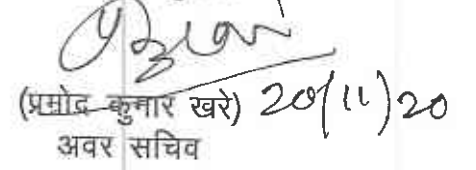 (प्रमोद कुमार खरे) 20/11/20
अवर सचिव